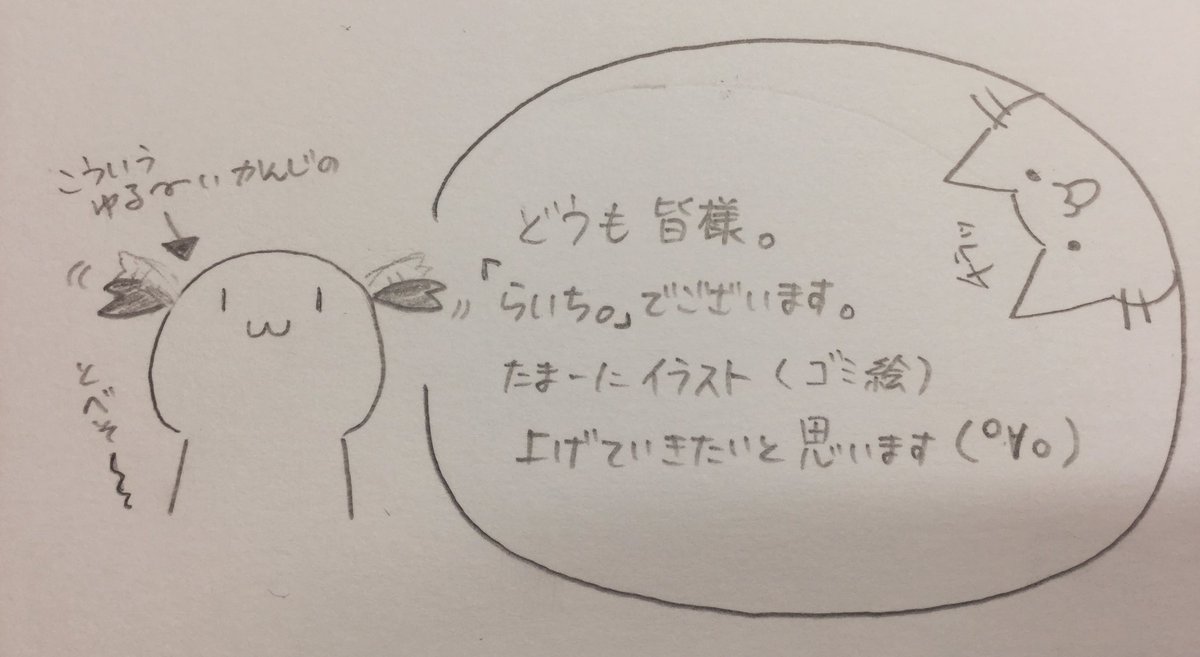 こういう
ゆる〜いかんじの
どうも皆様。
「らいち。」でございます。
たまーにイラスト(ゴミ絵)
上げていきたいと思います(°∀。)
とべそー